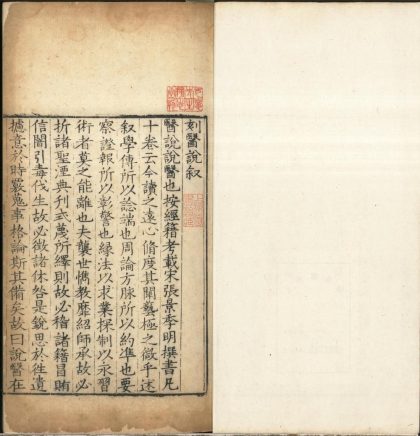 刻醫說叙
醫說說醫也按經籍考載宋張景季明撰書凡
十卷云今讀之遠心脩度其闡藝極之微乎述
叙學傳所以諗端也周論方脉所以約準也要
察證報所以彰警也緣法以求業探制以永習
術者莫之能離也夫襲世懏教靡紹師承故必
折諸聖湮典刋式蔑所繹則故必稽諸籍冒賄
信闇引毒伐生故必徵諸休咎是銳思於徃遺
攄意於時覈蒐事格論斯其備矣故曰說醫在